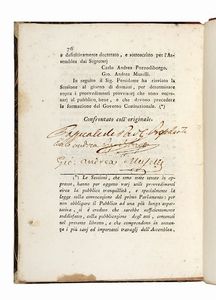 76
e definitivamente decretato, e sottoscritto per l'As-
semblea dai Signori
Carlo Andrea Pozzodiborgo.
Gio. Andrea Muselli.
In seguito il Sig. Presidente ha rinviato la
Sessione al giorno di domani, per determinare sopra
i provvedimenti provvisori che sono necessarj
al pubblico bene, e che devono precedere
la formazione del Governo Costituzionale. (*)
Confrontato coll'originale.
Pasquale de
Carlo Andrea
Gio: Andrea Muselli
(*) Le Sessioni, che sono state tenute in
appresso, hanno per oggetto varj utili provvedimenti
circa la pubblica tranquillità, e
legge sulla convocazione del primo Parlamento; per
non obbligare il Pubblico ad una più lunga aspettativa,
si è creduto che sarebbe sufficientemente
soddisfatto, colla pubblicazione degli atti, contenuti
nel presente libretto, e che comprendono in
i più varj ed importanti travaglj dell'Assemblea.